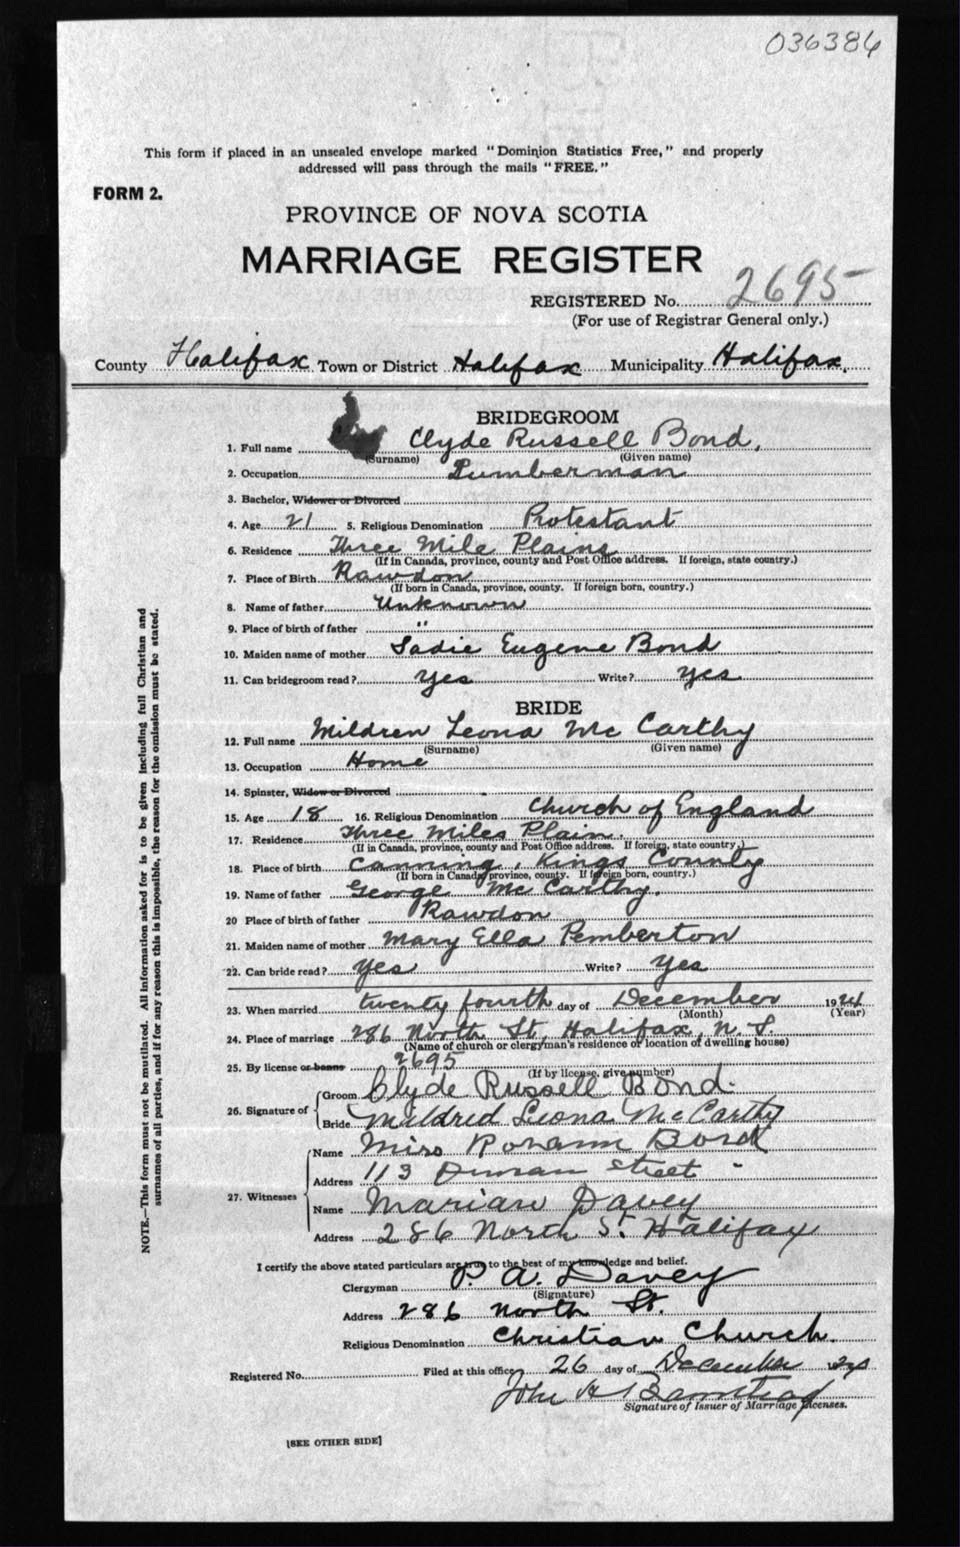 036386
This form if placed in an unsealed envelope marked "Dominion Statistics Free," and properly
addressed will pass through the mails "FREE."
FORM 2.
PROVINCE OF NOVA SCOTIA
MARRIAGE REGISTER
REGISTERED No. 2695
(For use of Registrar General only.)
County Halifax Town or District Halifax Municipality Halifax.
BRIDEGROOM
1. Full name Clyde Russell Bond,
(Surname) (Given name)
2. Occupation Lumberman
3. Bachelor, Widower or Divorced
4. Age 21 5. Religious Denomination Protestant
6. Residence Three Mile Plains
(If in Canada, province, county and Post Office address. If foreign, state country.)
7. Place of Birth Rawdon
(If born in Canada, province, county. If foreign born, country.)
8. Name of father Unknown
9. Place of birth of father "
10. Maiden name of mother Sadie Eugene Bond
11. Can bridegroom read? yes Write? yes
BRIDE
12. Full name Mildren Leona Mc Carthy
(Surname) (Given name)
13. Occupation Home
14. Spinster, Widow or Divorced
15. Age 18 16. Religious Denomination Church of England
17. Residence Three Miles Plain.
(If in Canada, province, county and Post Office address. If foreign, state country.)
18. Place of birth Canning, Kings County
(If born in Canada, province, county. If foreign born, country.)
19. Name of father George Mc Carthy.
20 Place of birth of father Rawdon
21. Maiden name of mother Mary Ella Pemberton
22. Can bride read? yes Write? yes
23. When married twenty fourth day of December 1924
(Month) (Year)
24. Place of marriage 286 North St, Halifax, N. S.
(Name of church or clergyman's residence or location of dwelling house)
25. By license or banns 2695
(If by license, give number)
26. Signature of Groom Clyde Russell Bond.
Bride Mildred Leona McCarthy
27. Witnesses Name Miss Bond
Address 113 Street
Name Marian Davey
Address 286 North St. Halifax
I certify the above stated particulars are true to the best of my knowledge and belief.
Clergyman P. A. Davey
(Signature)
Address 286 North St.
Religious Denomination Christian Church.
Registered No. Filed at this office 26 day of December 24
John
Signature of Issuer of Marriage Licenses.
[SEE OTHER SIDE]
NOTE.—This form must not be mutilated. All information asked for is to be given including full Christian and
surnames of all parties, and if for any reason this is impossible, the reason for the omission must be stated.